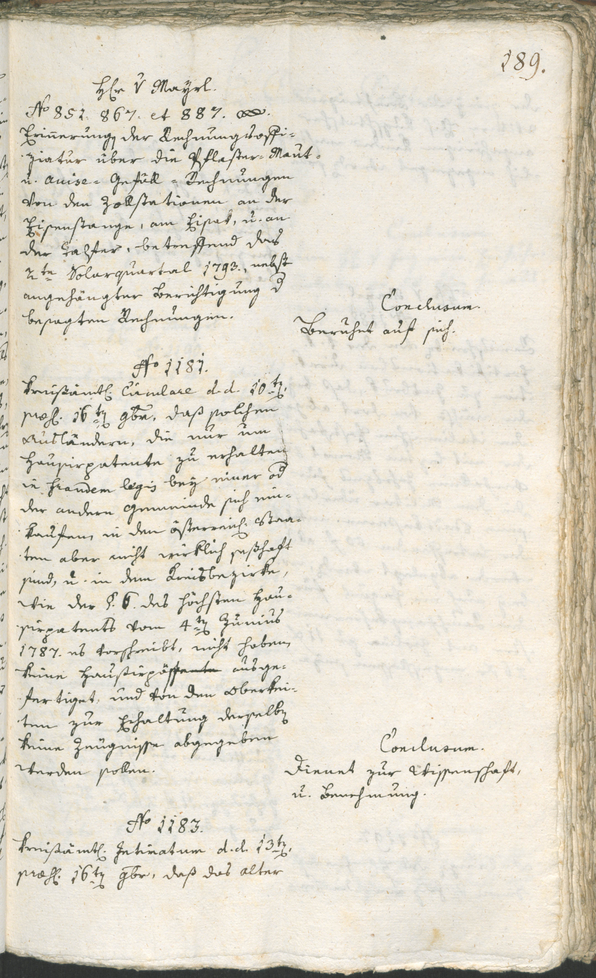 189.
H. v Mayrl.
No 851. 867. et 887.
Erinnerung der Rechnungsoffi-
ziatur über die Pflaster-Maut-
u. Avise-Gefäll-Rechnungen
von den Zollstationen an der
Eisenstange, am Eisak, u. an
der Talfer, betreffend das
2te Solarquartal 1793., nebst
angehängter Berichtigung d
besagten Rechnungen.
Conclusum.
Beruhet auf sich.
No 1181.
Kreisämtl. Circulare d.d. 10ten,
præs. 16ten 9br, daß solchen
Ausländern, die nur um
Hausirpatente zu erhalten
in fraudem legis bey einer od
der andern Gemeinde sich ein-
kaufen, in den österreich. Staa-
ten aber nicht wirklich seßhaft
sind, u. in dem Kreisbezirke,
wie der §. 6. des höchsten Hau-
sirpatents vom 4ten Junius
1787. es vorschreibt, nicht haben,
keine Hausirpässe ausge-
fertiget, und von den Oberkei-
ten zur Erhaltung derselben
keine Zeugnisse abgegeben
werden sollen.
Conclusum.
Dienet zur Wissenschaft,
u. Benehmung.
No 1183.
Kreisämtl. Intimatum d.d. 13ten,
præs. 16ten 9br, daß das alter